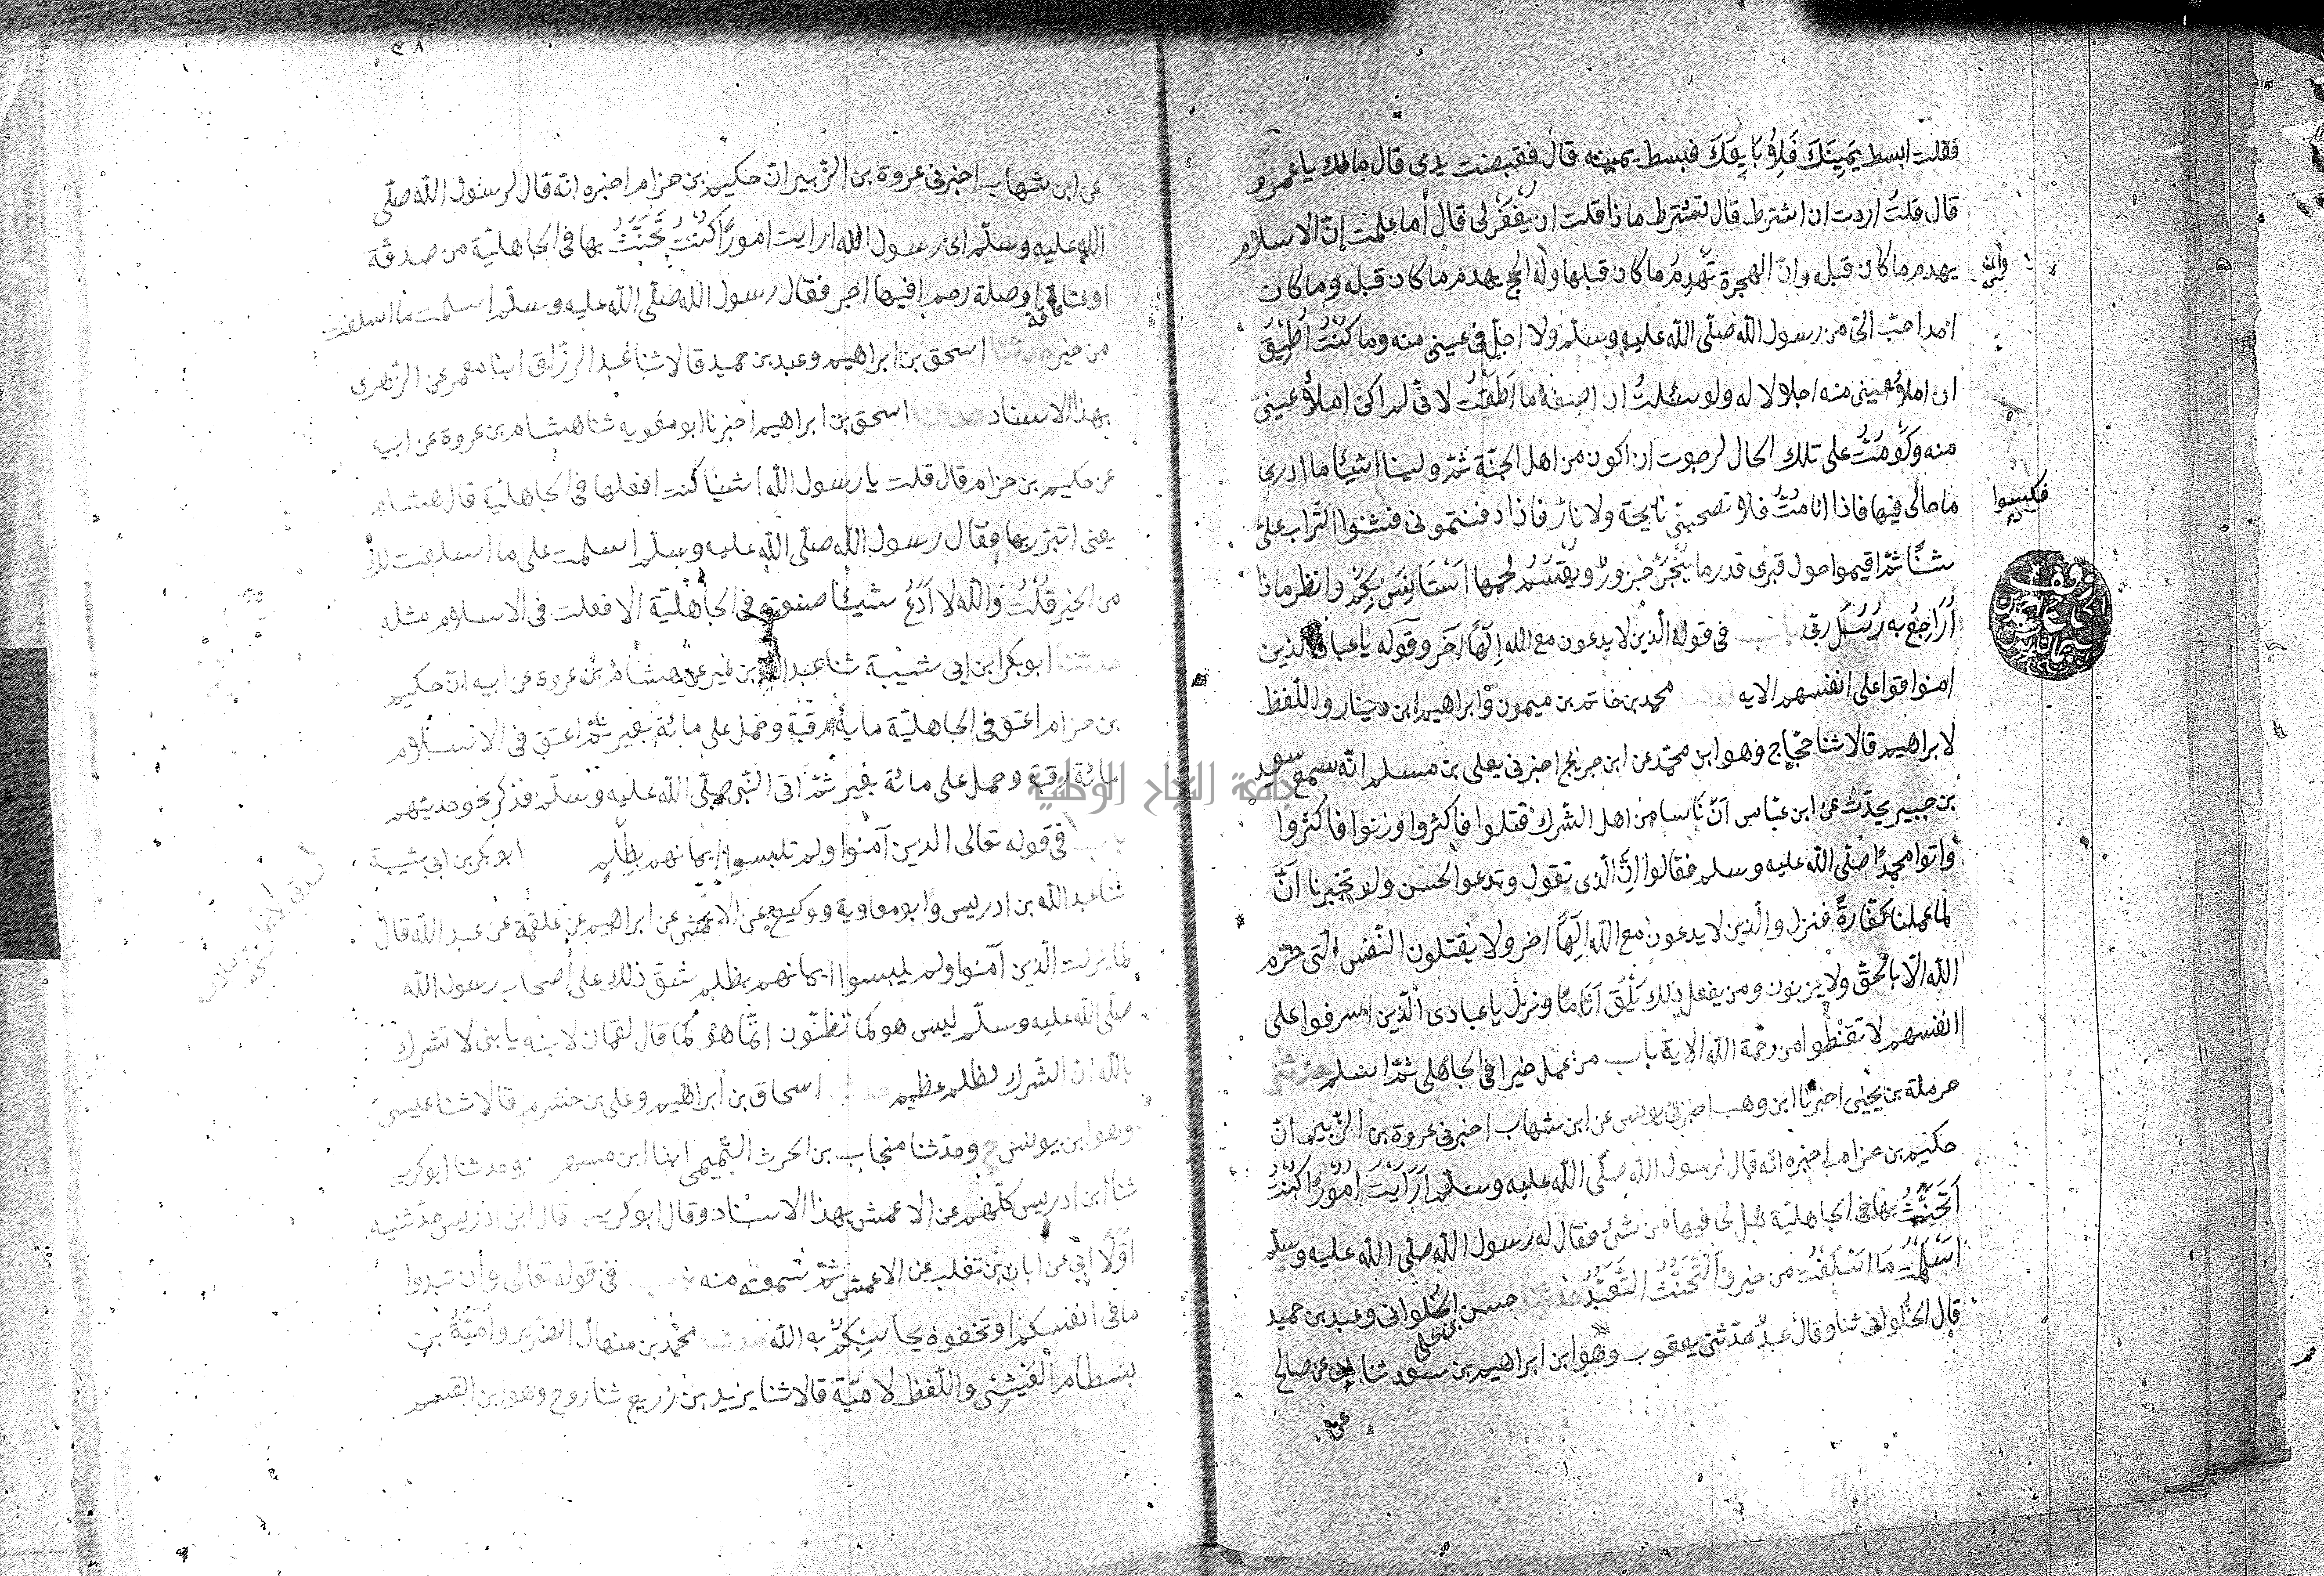 فقلت ابسط يمينك فلأبايعك فبسط يمينه قال فقبضت يدى قال مالك يا عمرو
قال قلت اردت ان اشترط قال تشترط ماذا قلت ان يغفر لى قال أما علمت إن الاسلام
يهدم ما كان قبله وان الهجرة تهدم ما كان قبلها وان الحج يهدم ما كان قبله وما كان
وان
احد احب الىّ من رسول الله صلّى الله عليه وسلم ولا اجل فى عينى منه وما كنت اطيق
ان املأ عينى منه اجلالا له ولو سئلت ان اصفه ما اطقت لانى لم اكن املأ عينىّ
منه ولو مت على تلك الحال لرجوت ان اكون من اهل الجنّة ثم ولينا اشيئا ما ادرى
ما حالى فيها فاذا انا مت فلا تصحبنى نايحة ولا نار فاذا دفنتمونى فشنوا التراب علىّ
شنّا ثم اقيموا حول قبرى قدر ما ينحر جزور ويقسم لحمها استانس بكم وانظر ماذا
أراجع به رسل ربى باب فى قوله الّذين لا يدعون مع الله إلهًا آخر وقوله يا عبادى الذين
امنوا قوا على انفسهم الايه محمد بن حاتم بن ميمون وابراهيم ابن دينار واللّفظ
لابراهيم قالا ثنا حجّاج وهو ابن محمّد عن ابن جريج اخبرنى يعلى بن مسلم انّه سمع سعيد
بن جبير يحدّث عن ابن عبّاس أنّ ناسا من اهل الشرك قتلوا فاكثروا وزنوا فاكثروا
واتوا محمّدًا صلّى الله عليه وسلم فقالوا انّ الّذى تقول وتدعو لحسن ولو تخبرنا انّ
لما عملنا كفارة فنزل والّذين لا يدعون مع الله الهًا اخر ولا يقتلون النّفس الّتى حرّم
الله الّا بالحقّ ولا يزنون ومن يفعل ذلك يلق آثامًا ونزل يا عبادى الّذين اسرفوا على
انفسهم لا تقنطوا من رحمة الله الاية باب من عمل خيرا فى الجاهلى ثمّ اسلم حدثنى
حرملة بن يحيى اخبرنا ابن وهب اخبرنى يونس عن ابن شهاب اخبرنى عروة بن الزّبير انّ
حكيم بن حزام اخبره انّه قال لرسول الله صلّى الله عليه وسلم أرايت امورًا كنت
اتحنّث بها فى الجاهليّة هل لى فيها من شئ فقال له رسول الله صلّى الله عليه وسلم
اسلمت ما اسلفت من خير والتّحنّث التّعبّد حدثنا حسن الحلوانى وعبد بن حميد
بن على
قال الحلوانى ثنا وقال عبد حدّثنى يعقوب وهو ابن ابراهيم بن سعد ثنا ابى عن صالح
عن
عن ابن شهاب اخبرنى عروة بن الزّبير انّ حكيم بن حزام اخبره انّه قال لرسول الله صلّى
الله عليه وسلّم اى رسول الله ارايت امورًا كنت تحنّث بها فى الجاهليّة من صدقة
او عتاقة او صلة رحم افيها اجر فقال رسول الله صلّى الله عليه وسلّم اسلمت ما اسلفت
من خير حدثنا اسحق بن ابراهيم وعبد بن حميد قالا ثنا عبد الرزّاق انبا معمر عن الزّهرى
بهذا الاسناد حدثنا اسحق بن ابراهيم اخبرنا ابو معٰوية ثنا هشام بن عروة عن ابيه
عن حكيم بن حزام قال قلت يا رسول الله اشيئا كنت افعلها فى الجاهليّة قال هشام
يعنى اتبرّر بها فقال رسول الله صلّى الله عليه وسلّم اسلمت على ما اسلفت لك
من الخير قلت والله لا ادع شيئا صنعته فى الجاهليّة الا فعلت فى الاسلام مثله
حدثنا ابو بكر ابن ابى شيبة ثنا عبد الله بن نمير عن هشام بن عروة عن ابيه انّ حكيم
بن حزام اعتق فى الجاهليّة مائة رقبة وحمل على مائة بعير ثمّ اعتق فى الاسلام
مائة رقبة وحمل على مائة بعير ثمّ اتى النّبى صلّى الله عليه وسلّم فذكر نحو حديثهم
باب فى قوله تعالى الذين آمنوا ولم تلبسوا ايمانهم بظلم ابو بكر بن ابى شيبة
ثنا عبد الله بن ادريس وابو معاوية ووكيع عن الاعمش عن ابراهيم عن علقمة عن عبد الله قال
لما نزلت الّذين آمنوا ولم يلبسوا ايمانهم بظلم شقّ ذلك على أصحاب رسول الله
صلّى الله عليه وسلّم ليس هو كما تظنّون انّما هو كما قال لقمان لابنه يا بنى لا تشرك
بالله انّ الشّرك لظلم عظيم حدثنا اسحاق بن ابراهيم وعلى بن خشرم قالا ثنا عيسى
وهو ابن يونس ح وحدّثنا منجاب بن الحرث التّميمى ابنا ابن مسهر وحدثنا ابو كريب
ثنا ابن ادريس كلّهم عن الاعمش بهذا الاسناد وقال ابو كريب قال ابن ادريس حدّثنيه
اوّلًا ابى عن ابان بن تغلب عن الاعمش ثمّ سمعته منه باب فى قوله تعالى وأن تبدوا
ما فى انفسكم او تخفوه يحاسبكم به الله حدثنا محمّد بن منهال الضرير وأميّة بن
بسطام العيشى واللّفظ لاميّة قالا ثنا يزيد بن زريع ثنا روح وهو ابن القسم
جامعة النجاح الوطنية